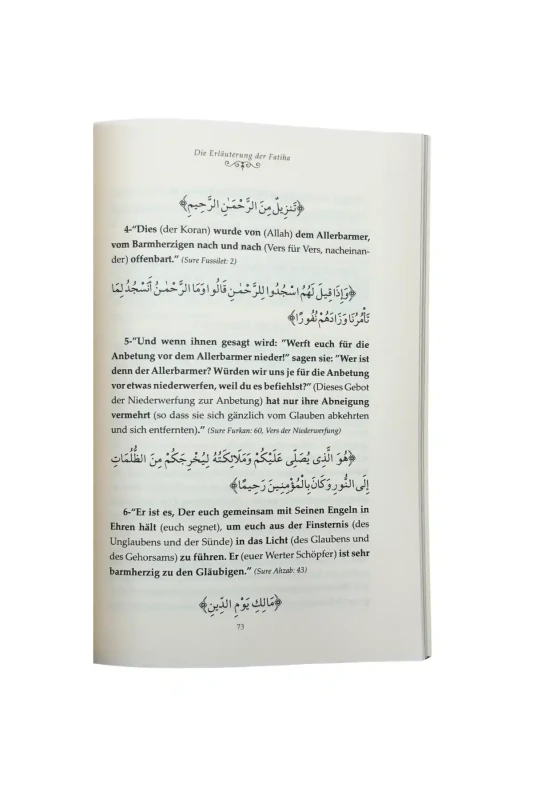 Die Erläuterung der Fatiha
﴿تَنزِيلٌ مِنَ الرَّحْمٰنِ الرَّحِيمِ﴾
4-“Dies (der Koran) wurde von (Allah) dem Allerbarmer,
vom Barmherzigen nach und nach (Vers für Vers, nacheinan-
der) offenbart.” (Sure Fussilet: 2)
﴿وَإِذَا قِيلَ لَهُمُ اسْجُدُوا لِلرَّحْمٰنِ قَالُوا وَمَا الرَّحْمٰنُ أَنَسْجُدُ لِمَا
تَأْمُرُنَا وَزَادَهُمْ نُفُورًا﴾
5-“Und wenn ihnen gesagt wird: “Werft euch für die
Anbetung vor dem Allerbarmer nieder!” sagen sie: “Wer ist
denn der Allerbarmer? Würden wir uns je für die Anbetung
vor etwas niederwerfen, weil du es befiehlst?” (Dieses Gebot
der Niederwerfung zur Anbetung) hat nur ihre Abneigung
vermehrt (so dass sie sich gänzlich vom Glauben abkehrten
und sich entfernten).” (Sure Furkan: 60, Vers der Niederwerfung)
﴿هُوَ الَّذِى يُصَلِّى عَلَيْكُمْ وَمَلَائِكَتُهُ لِيُخْرِجَكُمْ مِنَ الظُّلُمَاتِ
إِلَى النُّورِ وَكَانَ بِالْمُؤْمِنِينَ رَحِيمًا﴾
6-“Er ist es, Der euch gemeinsam mit Seinen Engeln in
Ehren hält (euch segnet), um euch aus der Finsternis (des
Unglaubens und der Sünde) in das Licht (des Glaubens und
des Gehorsams) zu führen. Er (euer Werter Schöpfer) ist sehr
barmherzig zu den Gläubigen.” (Sure Ahzab: 43)
﴿مَالِكِ يَوْمِ الدِّينِ﴾
73